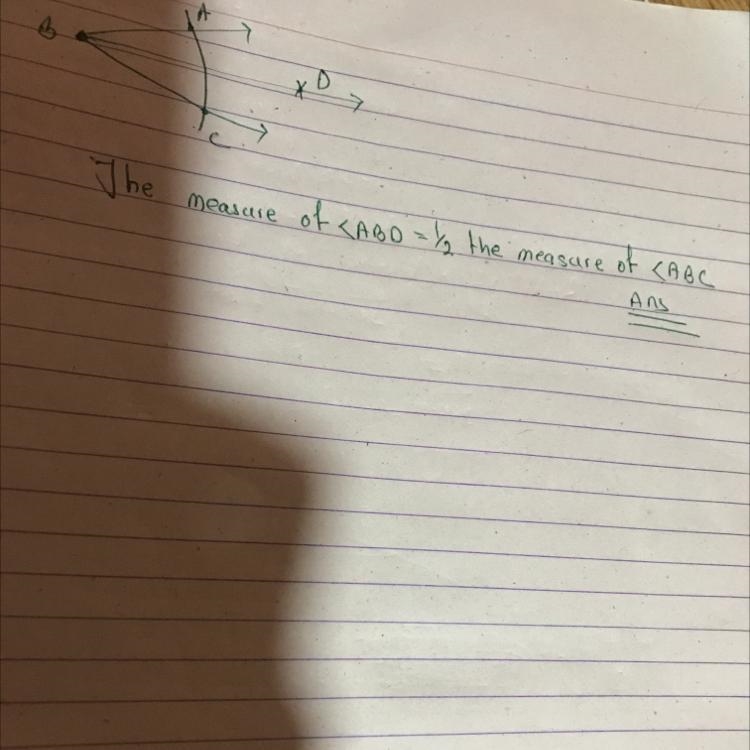 A
B
× D
C
The measure of <ABD = 1/2 the measure of <ABC
Ans